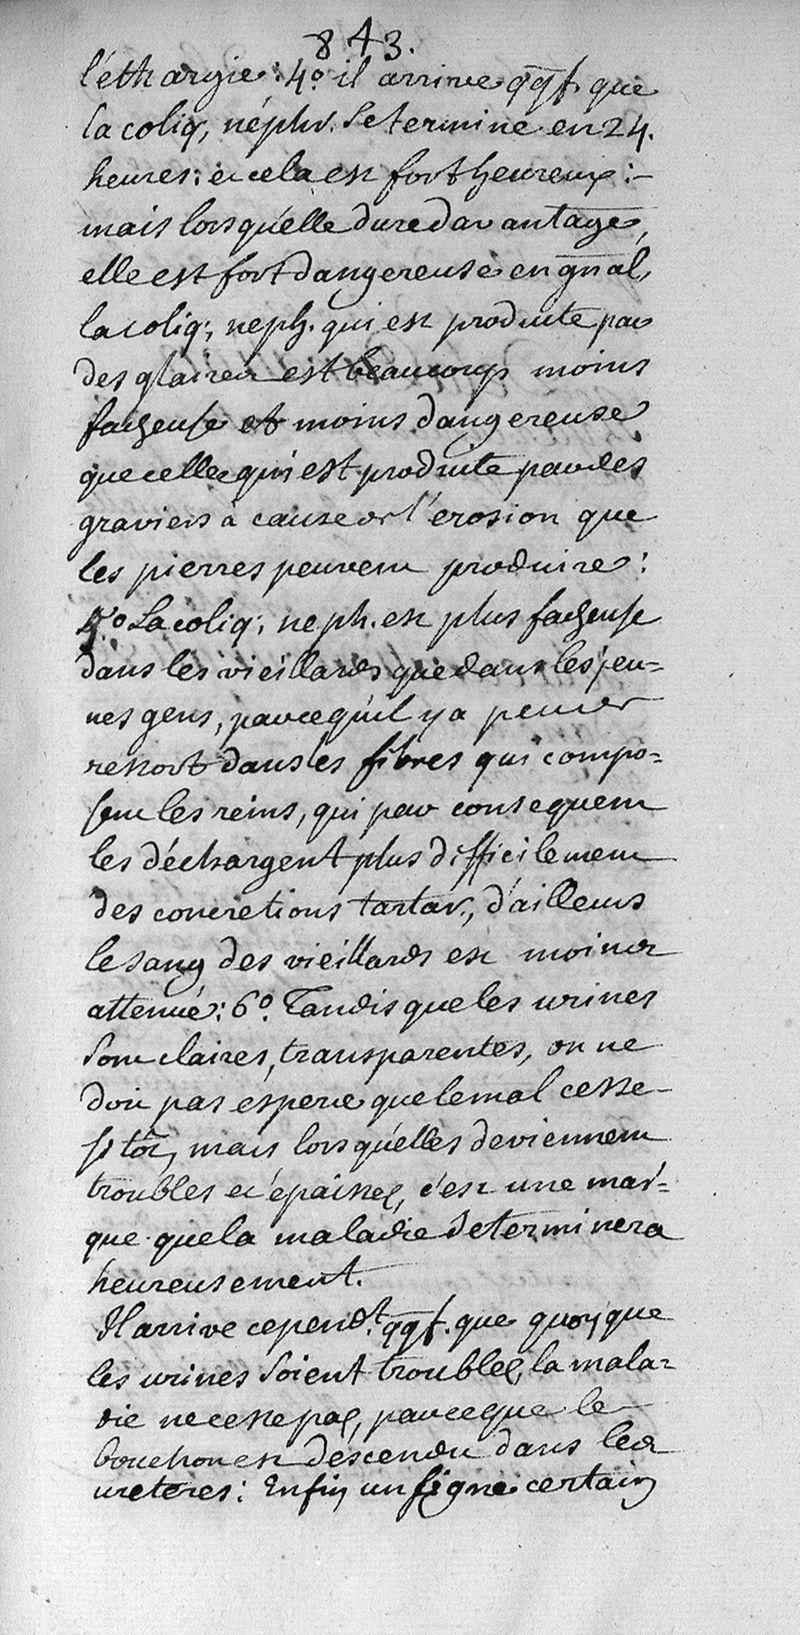 843.
l'éthargie: 4.° il arrive qqf. que
la coliq, néphr. se termine en 24.
heures: et cela est fort heureux:-
mais lorsqu'elle dure davantage,
elle est fort dangereuse en gñal,
la coliq; neph. qui est produite par
des glaires est beaucoup moins
facheuse et moins dangereuse
que celle qui est produite par des
graviers à cause de l'erosion que
les pierres peuvent produire:
5.° La coliq; neph. est plus facheuse
dans les vieillards que dans les jeu=
nes gens, parcequ'il y a peu de
ressort dans les fibres qui compo=
sent les reins, qui par consequent
les déchargent plus difficilement
des concretions tartar., d'ailleurs
le sang des vieillards est moins
attenué: 6.° Tandis que les urines
sont claires, transparentes, on ne
doit pas espérer que le mal cesse
sitôt, mais lorsqu'elles deviennent
troubles et épaisses, c'est une mar=
que que la maladie se terminera
heureusement.
Il arrive cepend.t qqf. que quoyque
les urines soient troubles, la mala=
die ne cesse pas, parceque le
bouchon est descendu dans les
ureteres: Enfin un signe certain